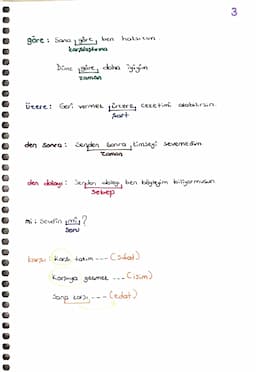 3
göre: Sana göre, ben haksızım.
karşılaştırma
Düne göre, daha iyiyim
zaman
üzere: Geri vermek üzere, ceketimi alabilirsin.
şart
den sonra: Senden sonra kimseyi sevemedim
zaman
den dolayı: Senden dolayı ben böyleyim biliyormusun.
sebep
mi: Sevdin mi?
soru
karşı: Karşı takım --- (sıfat)
Karşıya geçmek --- (isim)
Sana karşı --- (edat)